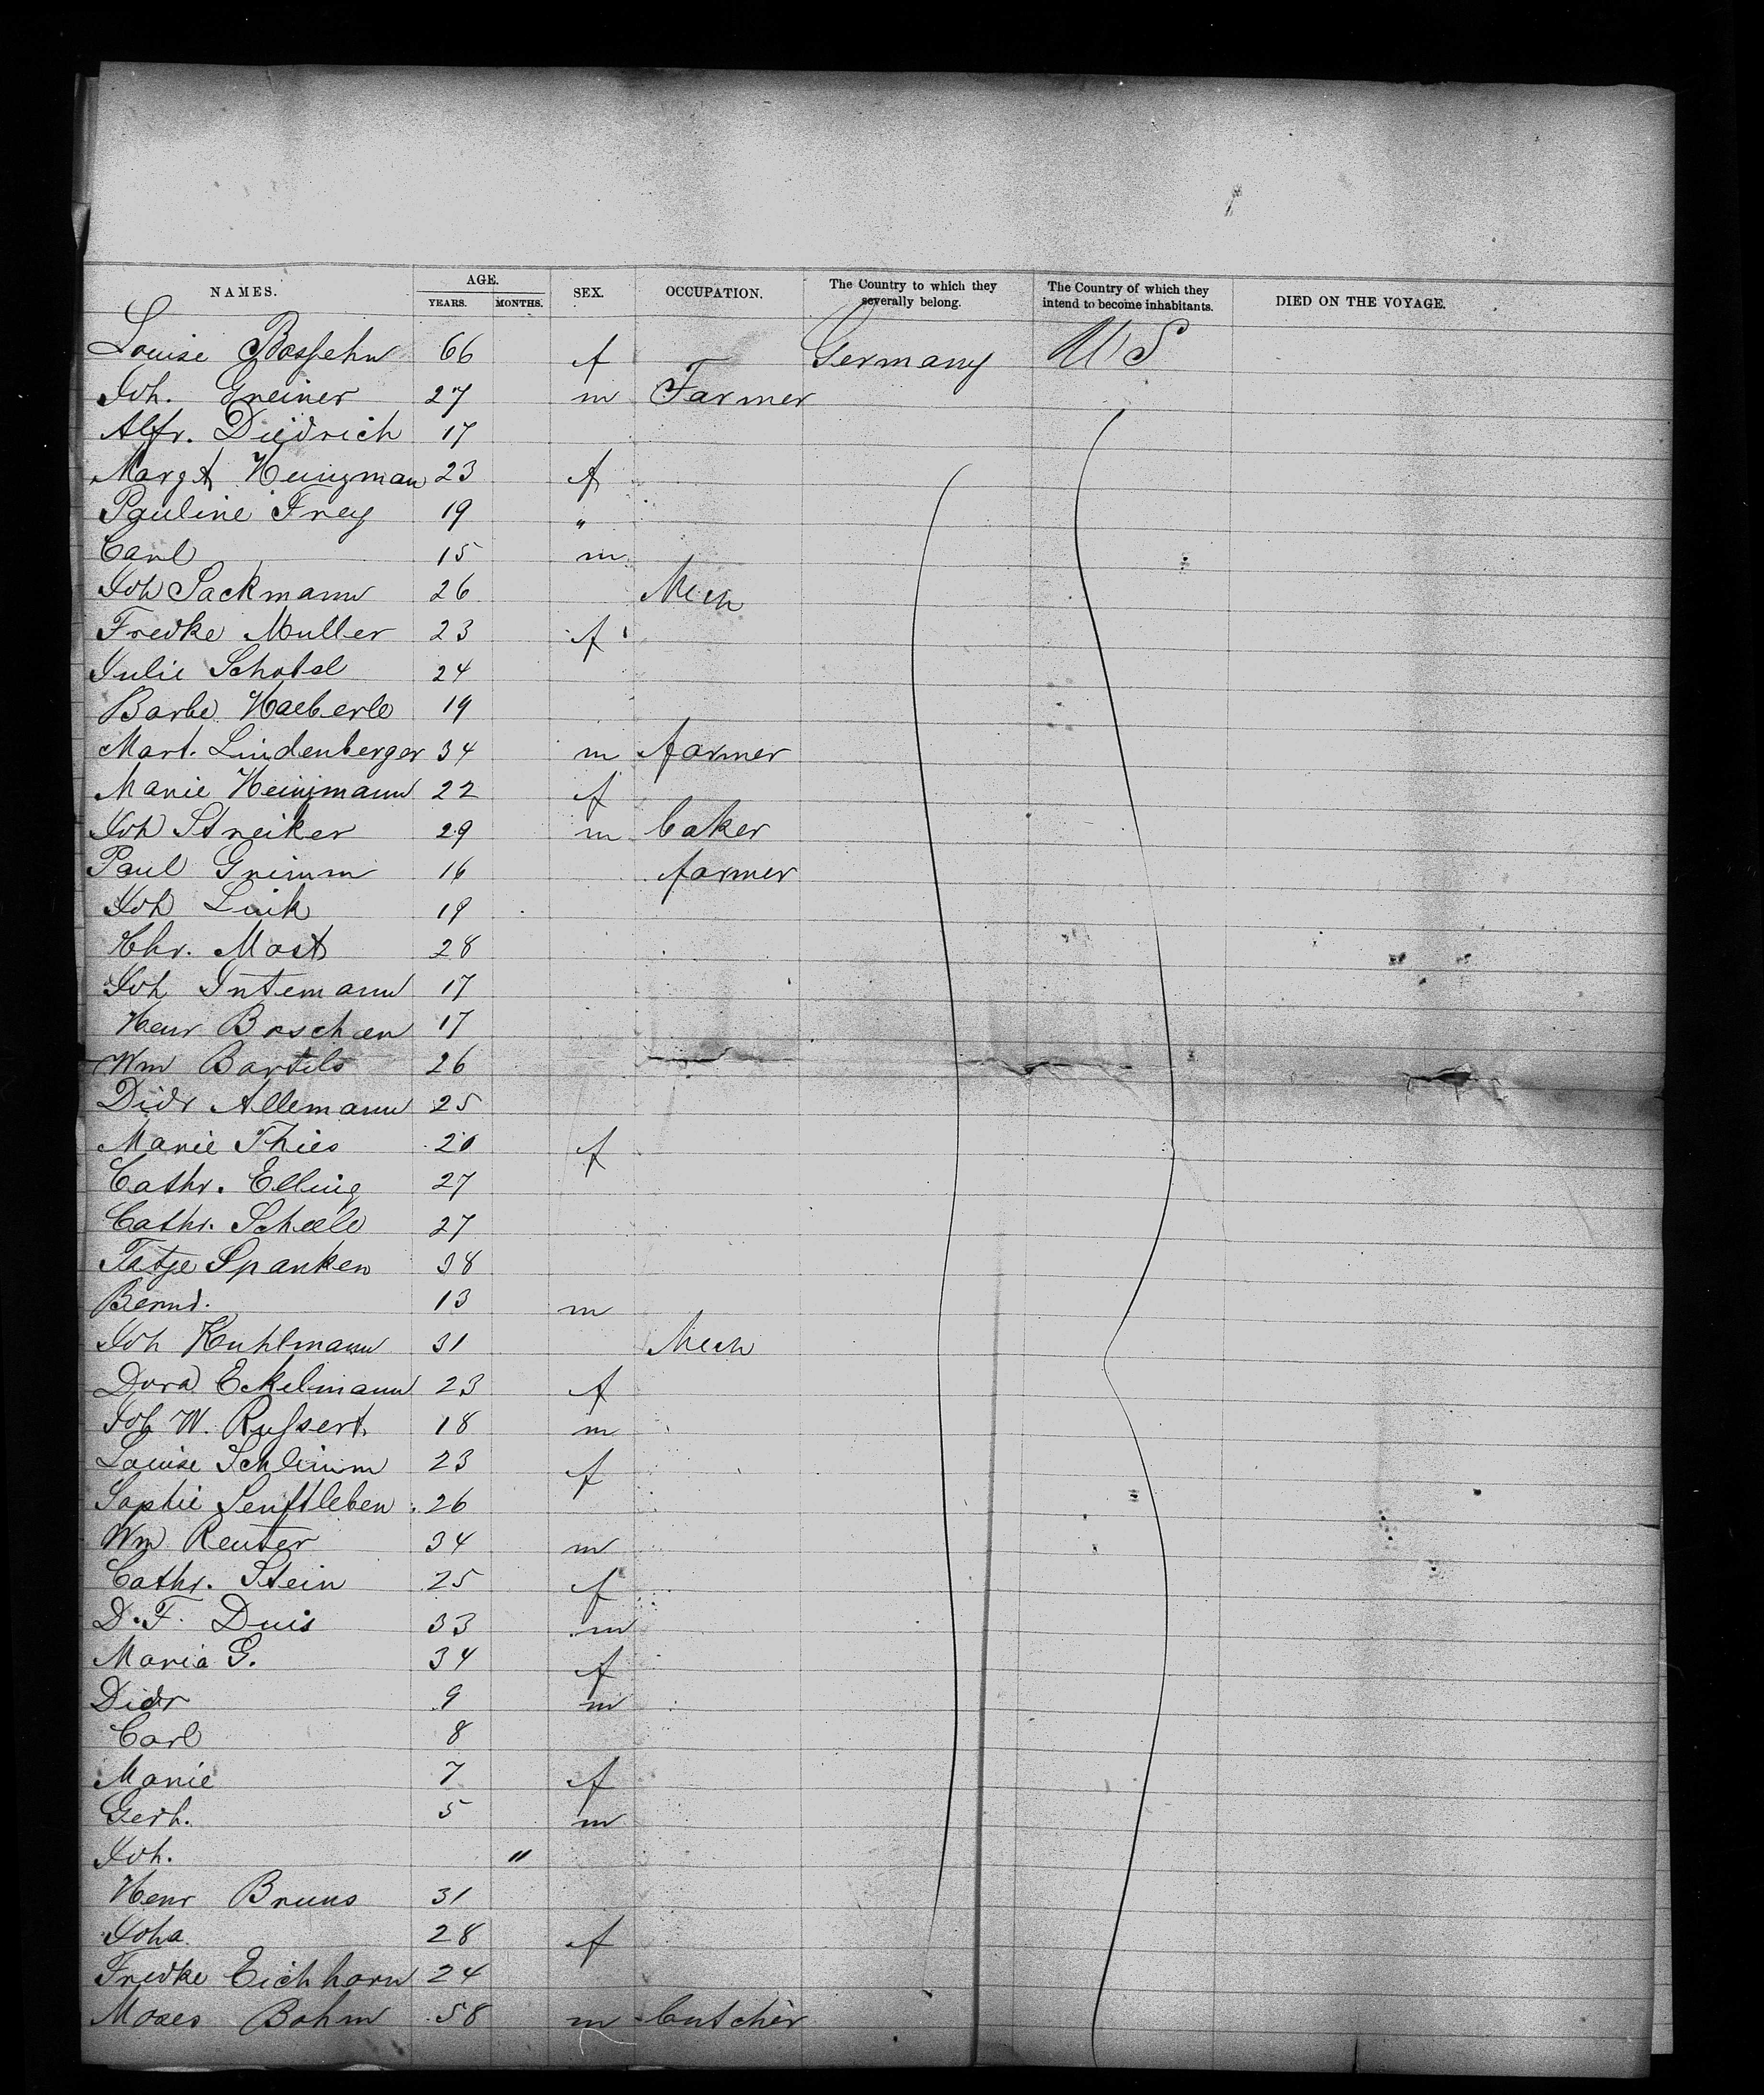 NAMES. AGE. YEARS. MONTHS. SEX. OCCUPATION. The Country to which they severally belong. The Country of which they intend to become inhabitants. DIED ON THE VOYAGE.
Louise 66 f Germany US
Joh. Greiner 27 m Farmer
Alfr. Diedrich 17
Margt 23 f
Pauline Frey 19 "
Carl 15 m
Joh Sackmann 26 Mech
Fredke Muller 23 f
Julie Schobel 24
Barbe Haeberle 19
Mart. Lindenberger 34 m farmer
Marie Heinimann 22 f
Joh Streiker 29 m baker
Paul Grimm 16 farmer
Joh Link 19
Chr. Mast 28
Joh Intemann 17
Henr Boschen 17
Wm Bartels 26
Didr Allemann 25
Marie Thies 20 f
Cathr. Elling 27
Cathr. Scheele 27
Tatje Spanken 38
Bernd. 13 m
Joh Kuhlmann 31 Mech
Dora Eckelmann 23 f
Joh W. Rußert 18 m
Louise Schlimm 23 f
Sophie Senftleben 26
Wm Reuter 34 m
Cathr. Stein 25 f
D. F. Duis 33 m
Maria G. 34 f
Didr 9 m
Carl 8
Marie 7 f
Gerh. 5 m
Joh. 11
Henr Bruns 31
Joha 28 f
Fredke Eichhorn 24
Moses Bohm 58 m butcher